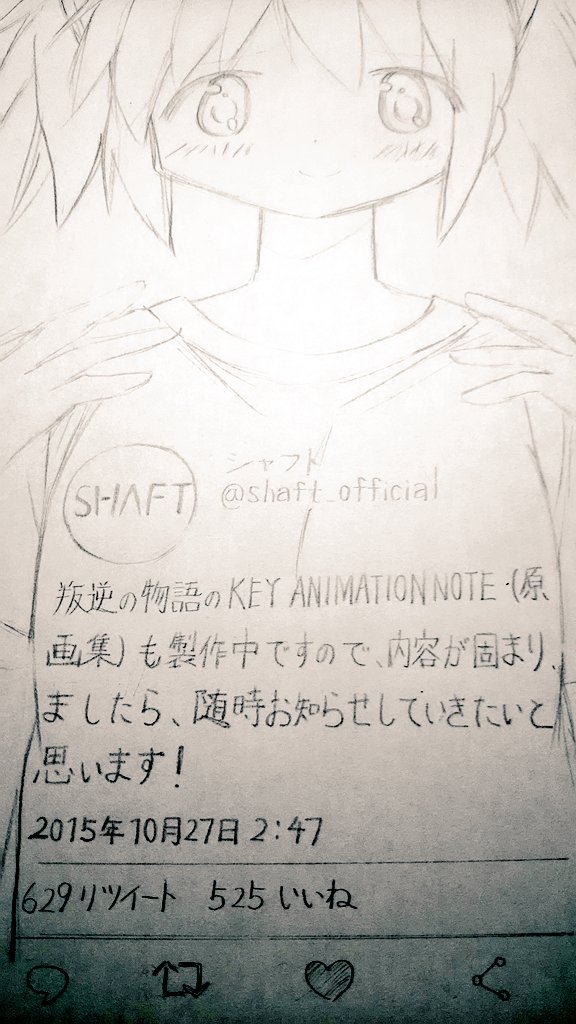 シャフト
SHAFT
@shaft_official
叛逆の物語のKEY ANIMATION NOTE (原
画集)も製作中ですので、内容が固まり
ましたら、随時お知らせしていきたいと
思います!
2015年10月27日 2:47
629リツイート 525いいね